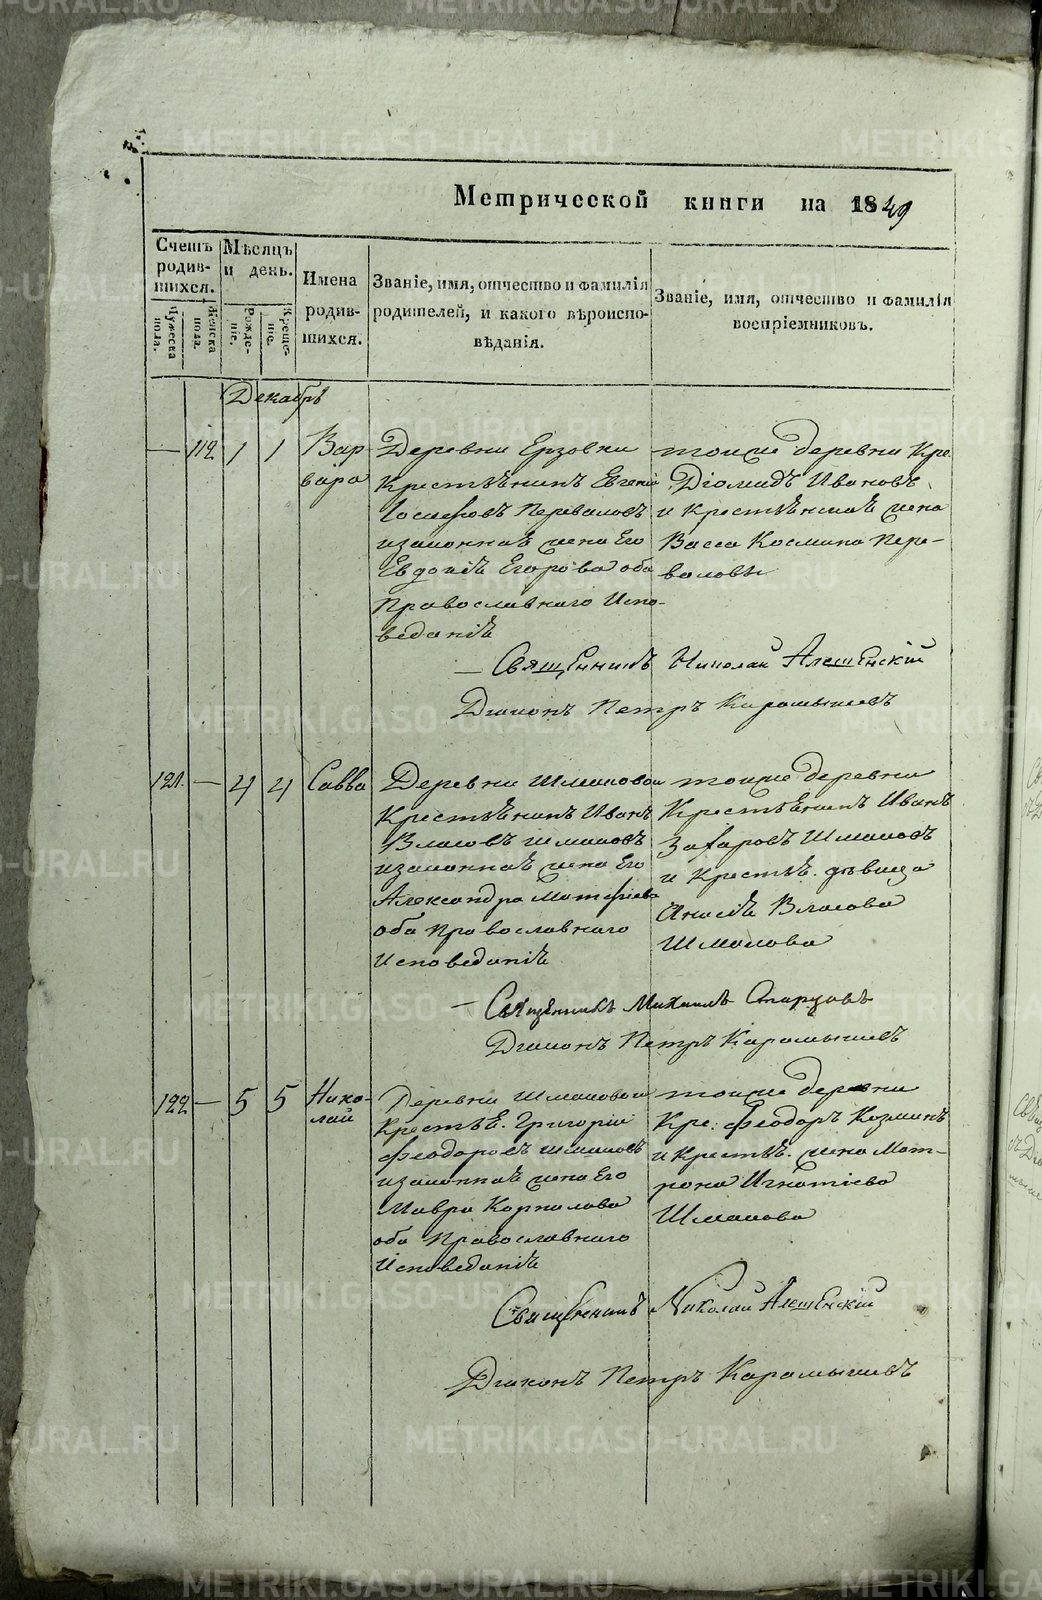 Метрической книги на 1849
Счетъ родив-шихся.
Мужеска пола.
Женска пола.
Мѣсяцъ и день.
Рожде-ніе.
Креще-ніе.
Имена родив-шихся.
Званіе, имя, отчество и фамилія
родителей, и какого вѣроиспо-
вѣданія.
Званіе, имя, отчество и фамилія
воспріемниковъ.
Декабрь
— 112 1 1 Вар-
вара
Деревни Ерзовки
Крестьѣнинъ Евгеній
Іосифовъ Перваловъ
изаконнаѣ жена Его
Евдокіѣ Егорова оба
Православнаго Испо-
веданіѣ
тоиже деревни Кре.
Діомидъ Ивановъ
и крестьѣнскаѣ жена
Васса Космина Пере-
валовы
— Священникъ Николай Алешенскій
Діаконъ Петръ Карамышевъ
121. — 4 4 Савва
Деревни Шмаковои
Крестьѣнинъ Иванъ
Власовъ Шмаковъ
изаконнаѣ жена Его
Александра Матфіева
оба Православнаго
Исповеданіѣ
тоиже деревни
Крестьѣнинъ Иванъ
Захаровъ Шмаковъ
и Крестьѣ. дѣвица
Власова
Шмакова
— Священникъ Михаилъ Старцовъ
Діаконъ Петръ Карамышевъ
122 — 5 5 Нико-
лай
Деревни Шмаковои
Крестьѣ. Григоріи
Феодоровъ Шмаковъ
изаконнаѣ жена Его
Мавра Карпилова
оба Православнаго
Исповеданіѣ
тоиже деревни
Кре: Феодоръ Козминъ
и Крестьѣ. жена Мат-
рона Игнатіева
Шмакова
Священникъ Николай Алешенскій
Діаконъ Петръ Карамышевъ
METRIKI.GASO-URAL.RU